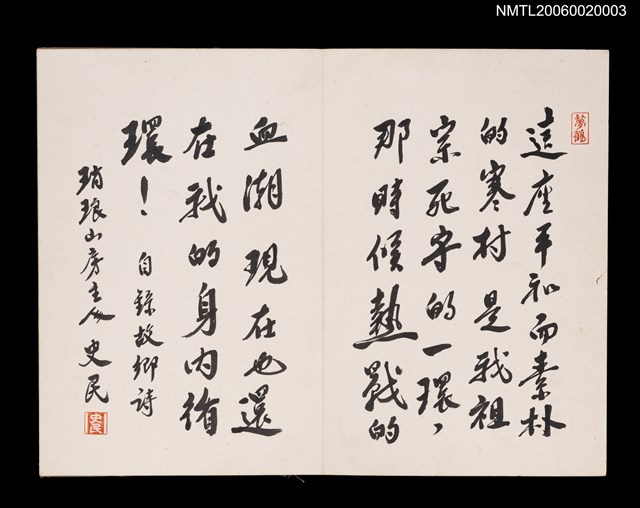 NMTL20060020003
這座平和而素朴
的寒村是我祖
宗死守的一環，
那時候熱戰的
血潮現在也還
在我的身內循
環！
自錄故鄉詩
琑琅山房主人史民
史民